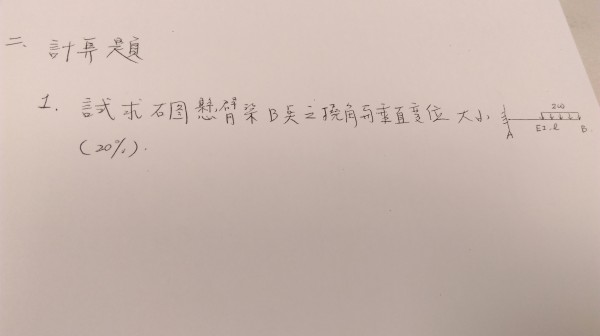 二、計算題
1. 試求右图懸臂梁B点之撓角與垂直變位大小
(20%).
2ω
A EI, l B